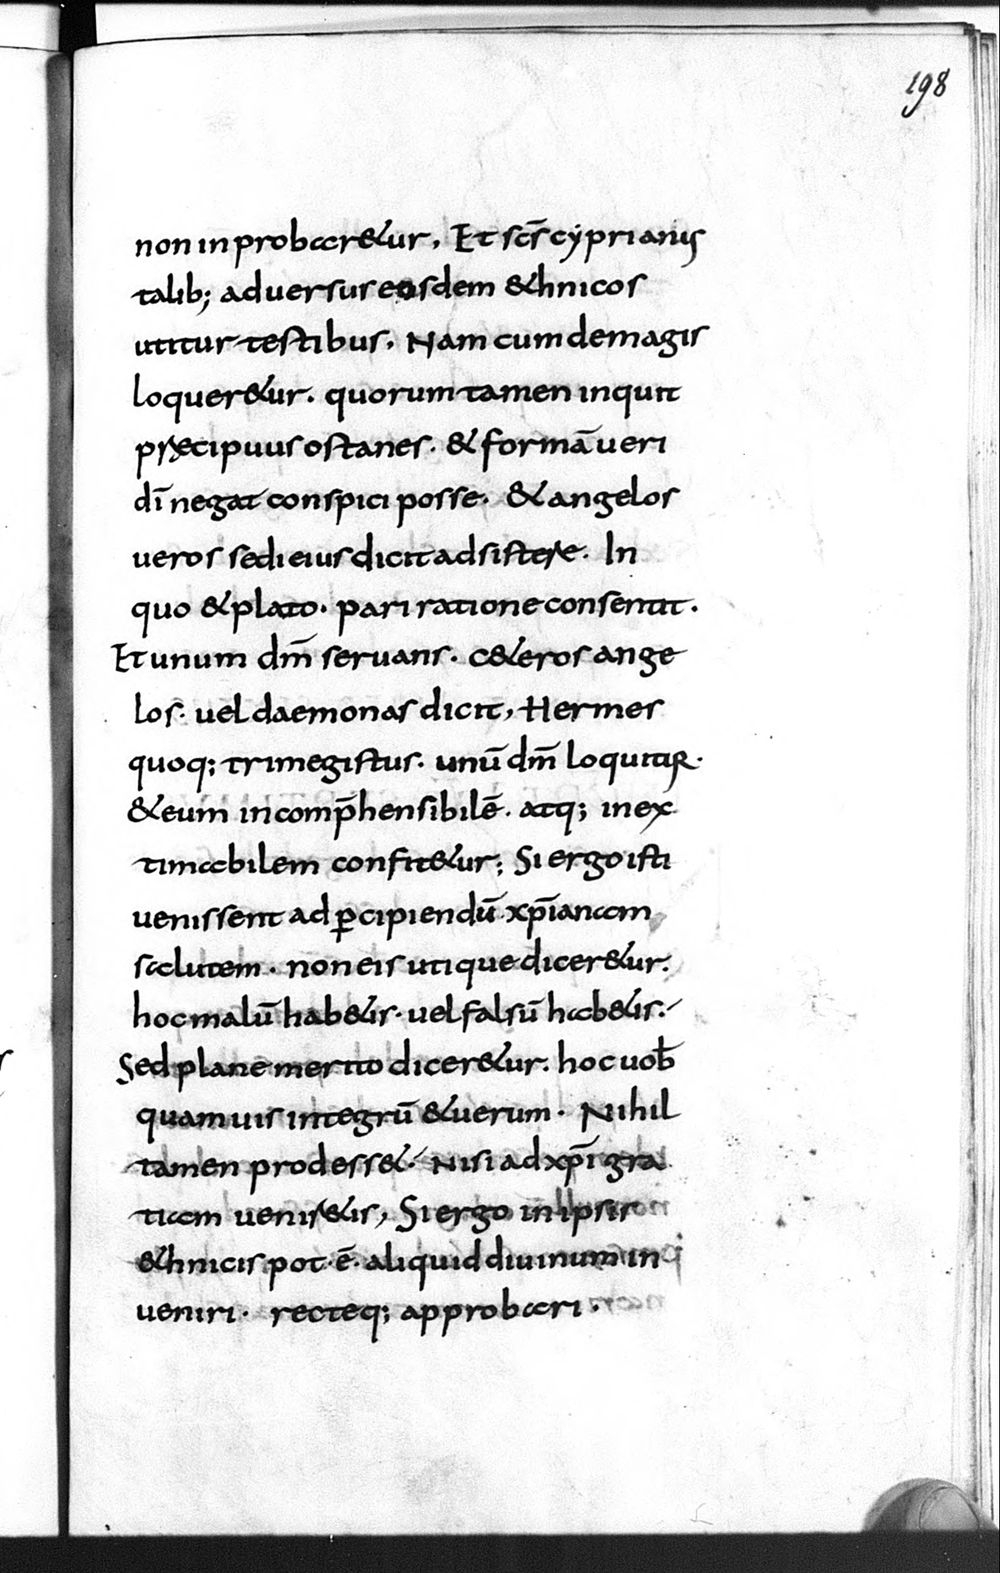 198
non inprobar&ur, Et scs̄ cyprianus
talib; aduersus eosdem &hnicos
utitur testibus. Nam cum de magis
loquer&ur. quorum tamen inquit
præcipuus ostanes. & formā ueri
dī negat conspici posse. & angelos
ueros sedi eius dicit adsistere. In
quo & plato. pari ratione consentit.
Et unum dm̄ seruans. c&eros ange
los. uel daemonas dicit, Hermes
quoq; trimegistus. unū dm̄ loquitur.
& eum incomp̄hensibilē. atq; inex
timabilem confit&ur; Si ergo isti
uenissent ad ꝑcipiendū xp̄ianam
salutem. non eis utique dicer&ur.
hoc malū hab&is. uel falsū hab&is.
Sed plane merito dicer&ur. hoc uob̄
quamuis integrū & uerum. Nihil
tamen prodess&. Nisi ad xp̄i gra
tiam uenir&is, Si ergo in ipsis
&hnicis pot. ē. aliquid diuinum in
ueniri. recteq; approbari.